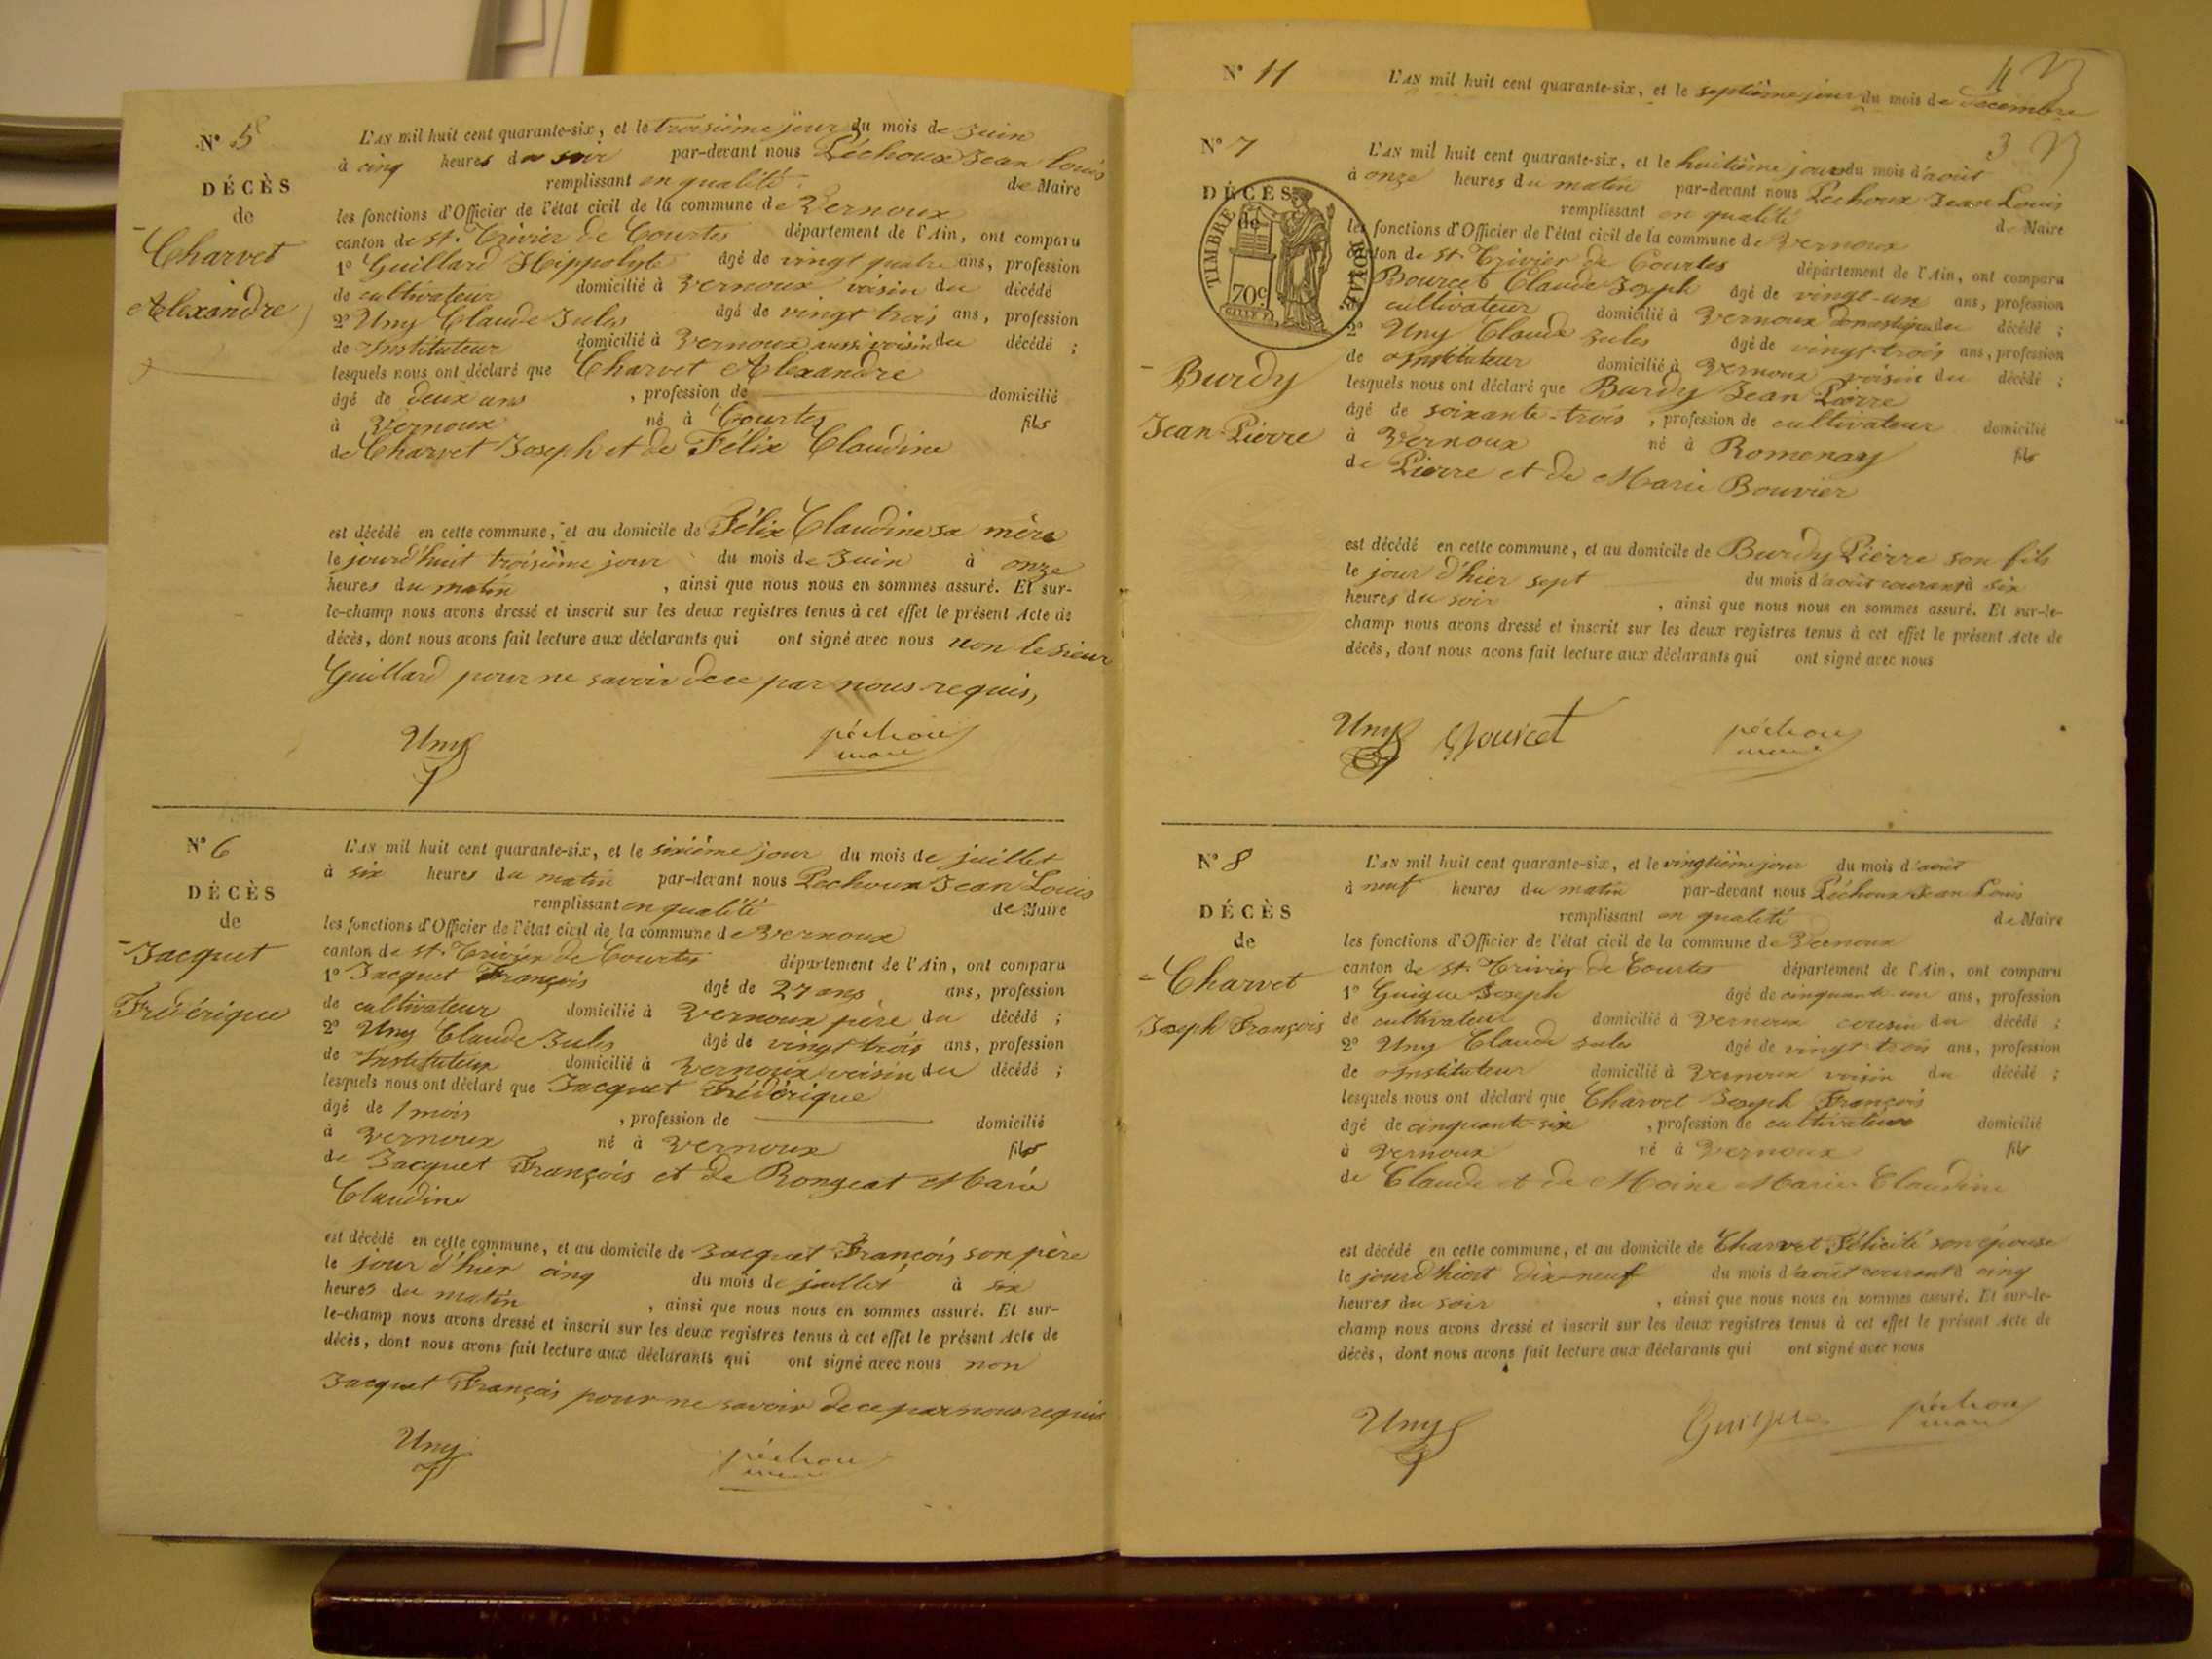 N° 5
DÉCÈS
de
Charvet
Alexandre
L'AN mil huit cent quarante-six, et le troisième jour du mois de Juin
à cinq heures du soir par-devant nous Péchoux Jean Louis
remplissant en qualité de Maire
les fonctions d'Officier de l'état civil de la commune de Vernoux
canton de St. Trivier de Courtes département de l'Ain, ont comparu
1° Guillard Hippolyte âgé de vingt quatre ans, profession
de cultivateur domicilié à Vernoux voisin du décédé
2° Uny Claude Jules âgé de vingt trois ans, profession
de Instituteur domicilié à Vernoux aussi voisin du décédé ;
lesquels nous ont déclaré que Charvet Alexandre
âgé de deux ans , profession de domicilié
à Vernoux né à Courtes fils
de Charvet Joseph et de Félix Claudine
est décédé en cette commune, et au domicile de Félix Claudine sa mère
le jourd'huit troisième jour du mois de Juin à onze
heures du matin , ainsi que nous nous en sommes assuré. Et sur-
le-champ nous avons dressé et inscrit sur les deux registres tenus à cet effet le présent Acte de
décès, dont nous avons fait lecture aux déclarants qui ont signé avec nous non le sieur
Guillard pour ne savoir de ce par nous requis,
Uny péchoux
maire
N° 6
DÉCÈS
de
Jacquet
Frédérique
L'AN mil huit cent quarante-six, et le sixième jour du mois de juillet
à six heures du matin par-devant nous Péchoux Jean Louis
remplissant en qualité de Maire
les fonctions d'Officier de l'état civil de la commune de Vernoux
canton de St. Trivier de Courtes département de l'Ain, ont comparu
1° Jacquet François âgé de 27 ans ans, profession
de cultivateur domicilié à Vernoux père du décédé ;
2° Uny Claude Jules âgé de vingt trois ans, profession
de Instituteur domicilié à Vernoux voisin du décédé ;
lesquels nous ont déclaré que Jacquet Frédérique
âgé de 1 mois , profession de domicilié
à Vernoux né à Vernoux fils
de Jacquet François et de Rongeat Marie
Claudine
est décédé en cette commune, et au domicile de Jacquet François son père
le jour d'hier cinq du mois de juillet à six
heures du matin , ainsi que nous nous en sommes assuré. Et sur-
le-champ nous avons dressé et inscrit sur les deux registres tenus à cet effet le présent Acte de
décès, dont nous avons fait lecture aux déclarants qui ont signé avec nous non
Jacquet François pour ne savoir de ce par nous requis
Uny péchoux
maire
N° 11 L'AN mil huit cent quarante-six, et le septième jour du mois de décembre
4
3
N° 7
DÉCÈS
de
TIMBRE ROYAL
70c
Burdy
Jean-Pierre
L'AN mil huit cent quarante-six, et le huitième jour du mois d'août
à onze heures du matin par-devant nous Péchoux Jean Louis
remplissant en qualité de Maire
les fonctions d'Officier de l'état civil de la commune de Vernoux
canton de St. Trivier de Courtes département de l'Ain, ont comparu
Bourcet Claude Joseph âgé de vingt-un ans, profession
cultivateur domicilié à Vernoux domestique du décédé ;
2° Uny Claude Jules âgé de vingt-trois ans, profession
de Instituteur domicilié à Vernoux voisin du décédé ;
lesquels nous ont déclaré que Burdy Jean Pierre
âgé de soixante-trois , profession de cultivateur domicilié
à Vernoux né à Romenay fils
de Pierre et de Marie Bouvier
est décédé en cette commune, et au domicile de Burdy Pierre son fils
le jour d'hier sept du mois d'août courant à six
heures du soir , ainsi que nous nous en sommes assuré. Et sur-le-
champ nous avons dressé et inscrit sur les deux registres tenus à cet effet le présent Acte de
décès, dont nous avons fait lecture aux déclarants qui ont signé avec nous
Uny Bourcet péchoux
maire
N° 8
DÉCÈS
de
Charvet
Joseph François
L'AN mil huit cent quarante-six, et le vingtième jour du mois d'août
à neuf heures du matin par-devant nous Péchoux Jean Louis
remplissant en qualité de Maire
les fonctions d'Officier de l'état civil de la commune de Vernoux
canton de St. Trivier de Courtes département de l'Ain, ont comparu
1° Guigue Joseph âgé de cinquante-un ans, profession
de cultivateur domicilié à Vernoux cousin du décédé ;
2° Uny Claude Jules âgé de vingt-trois ans, profession
de Instituteur domicilié à Vernoux voisin du décédé ;
lesquels nous ont déclaré que Charvet Joseph François
âgé de cinquante-six , profession de cultivateur domicilié
à Vernoux né à Vernoux fils
de Claude et de Moine Marie Claudine
est décédé en cette commune, et au domicile de Charvet Félicité son épouse
le jour d'hiert dix-neuf du mois d'août courant à cinq
heures du soir , ainsi que nous nous en sommes assuré. Et sur-le-
champ nous avons dressé et inscrit sur les deux registres tenus à cet effet le présent Acte de
décès, dont nous avons fait lecture aux déclarants qui ont signé avec nous
Uny Guigue péchoux
maire